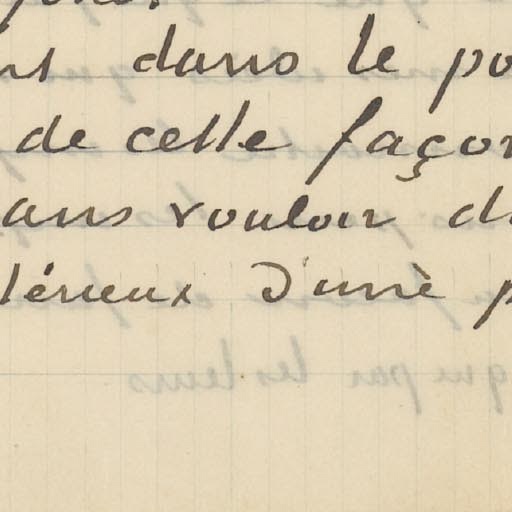 ns dans le po
de cette façon
ans vouloir di
térieux d'une p